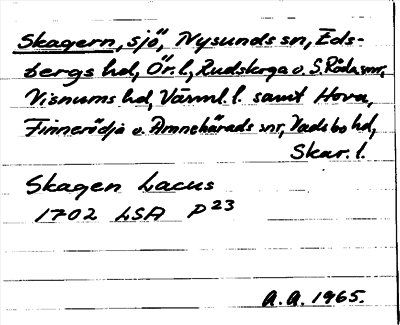 Skagern, sjö, Nysunds sn, Eds-
bergs hd, Ör. l., Rudskoga o. S. Råda snr,
Visnums hd, Värml. l. samt Hova,
Finnerödja o. Amnehärads snr, Vadsbo hd,
Skar. l.
Skagen Lacus
1702 LSA P 23
A. A. 1965.